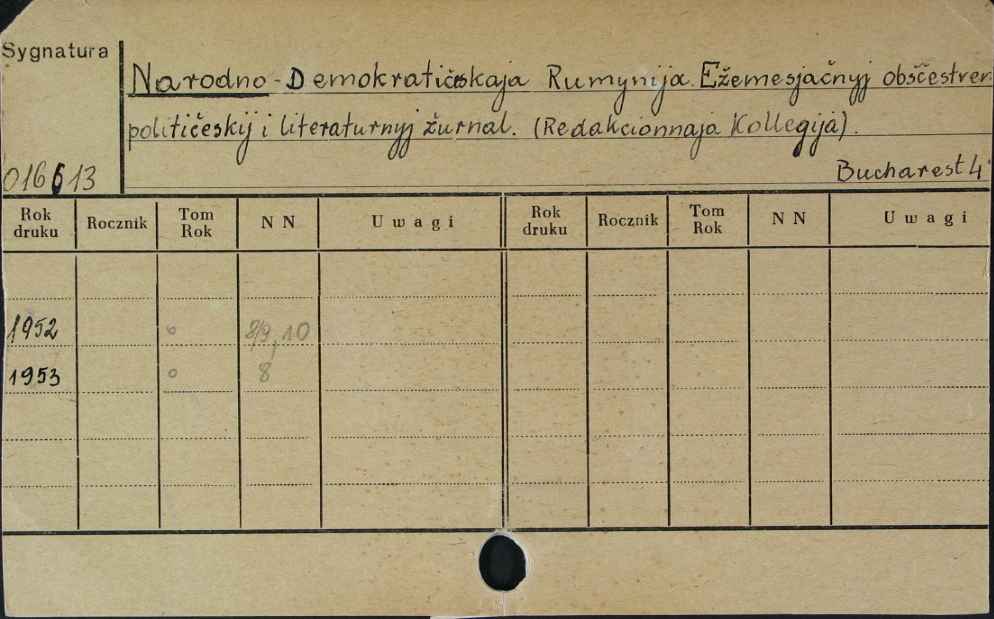 Sygnatura
Narodno-Demokratičeskaja Rumynija. Ežemesjačnyj obščestven.
političeskij i literaturnyj žurnal. (Redakcionnaja Kollegija).
016613
Bucharest 4°
Rok druku Rocznik Tom Rok N N Uwagi Rok druku Rocznik Tom Rok N N Uwagi
1952 o 8/9, 10
1953 o 8